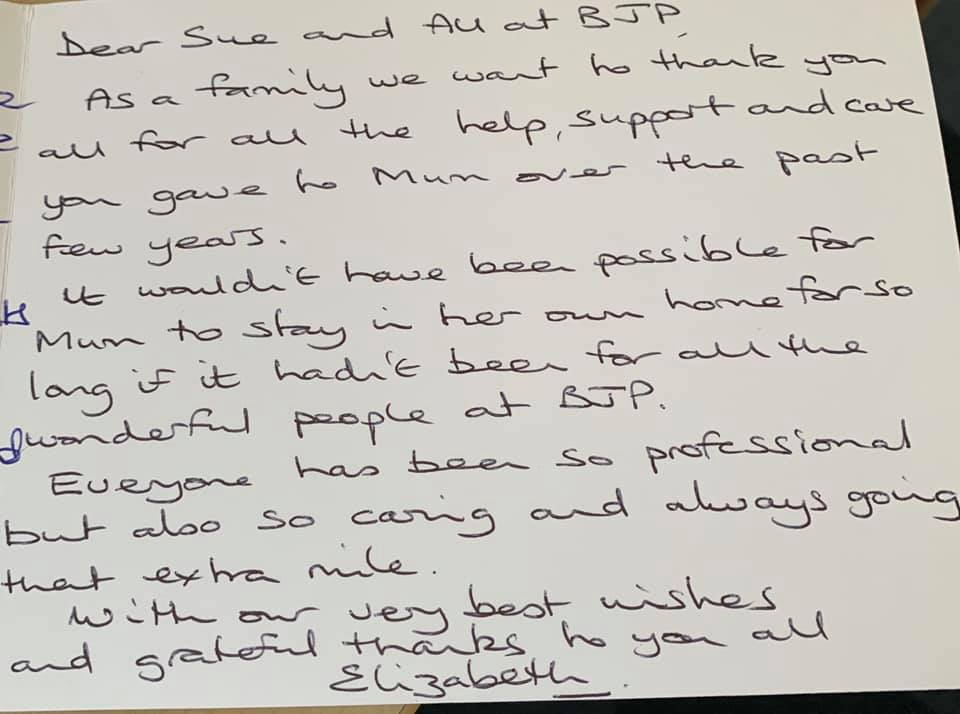 Dear Sue and All at BJP,
As a family we want to thank you
all for all the help, support and care
you gave to Mum over the past
few years.
It wouldn't have been possible for
Mum to stay in her own home for so
long if it hadn't been for all the
wonderful people at BJP.
Everyone has been so professional
but also so caring and always going
that extra mile.
With our very best wishes
and grateful thanks to you all
Elizabeth.